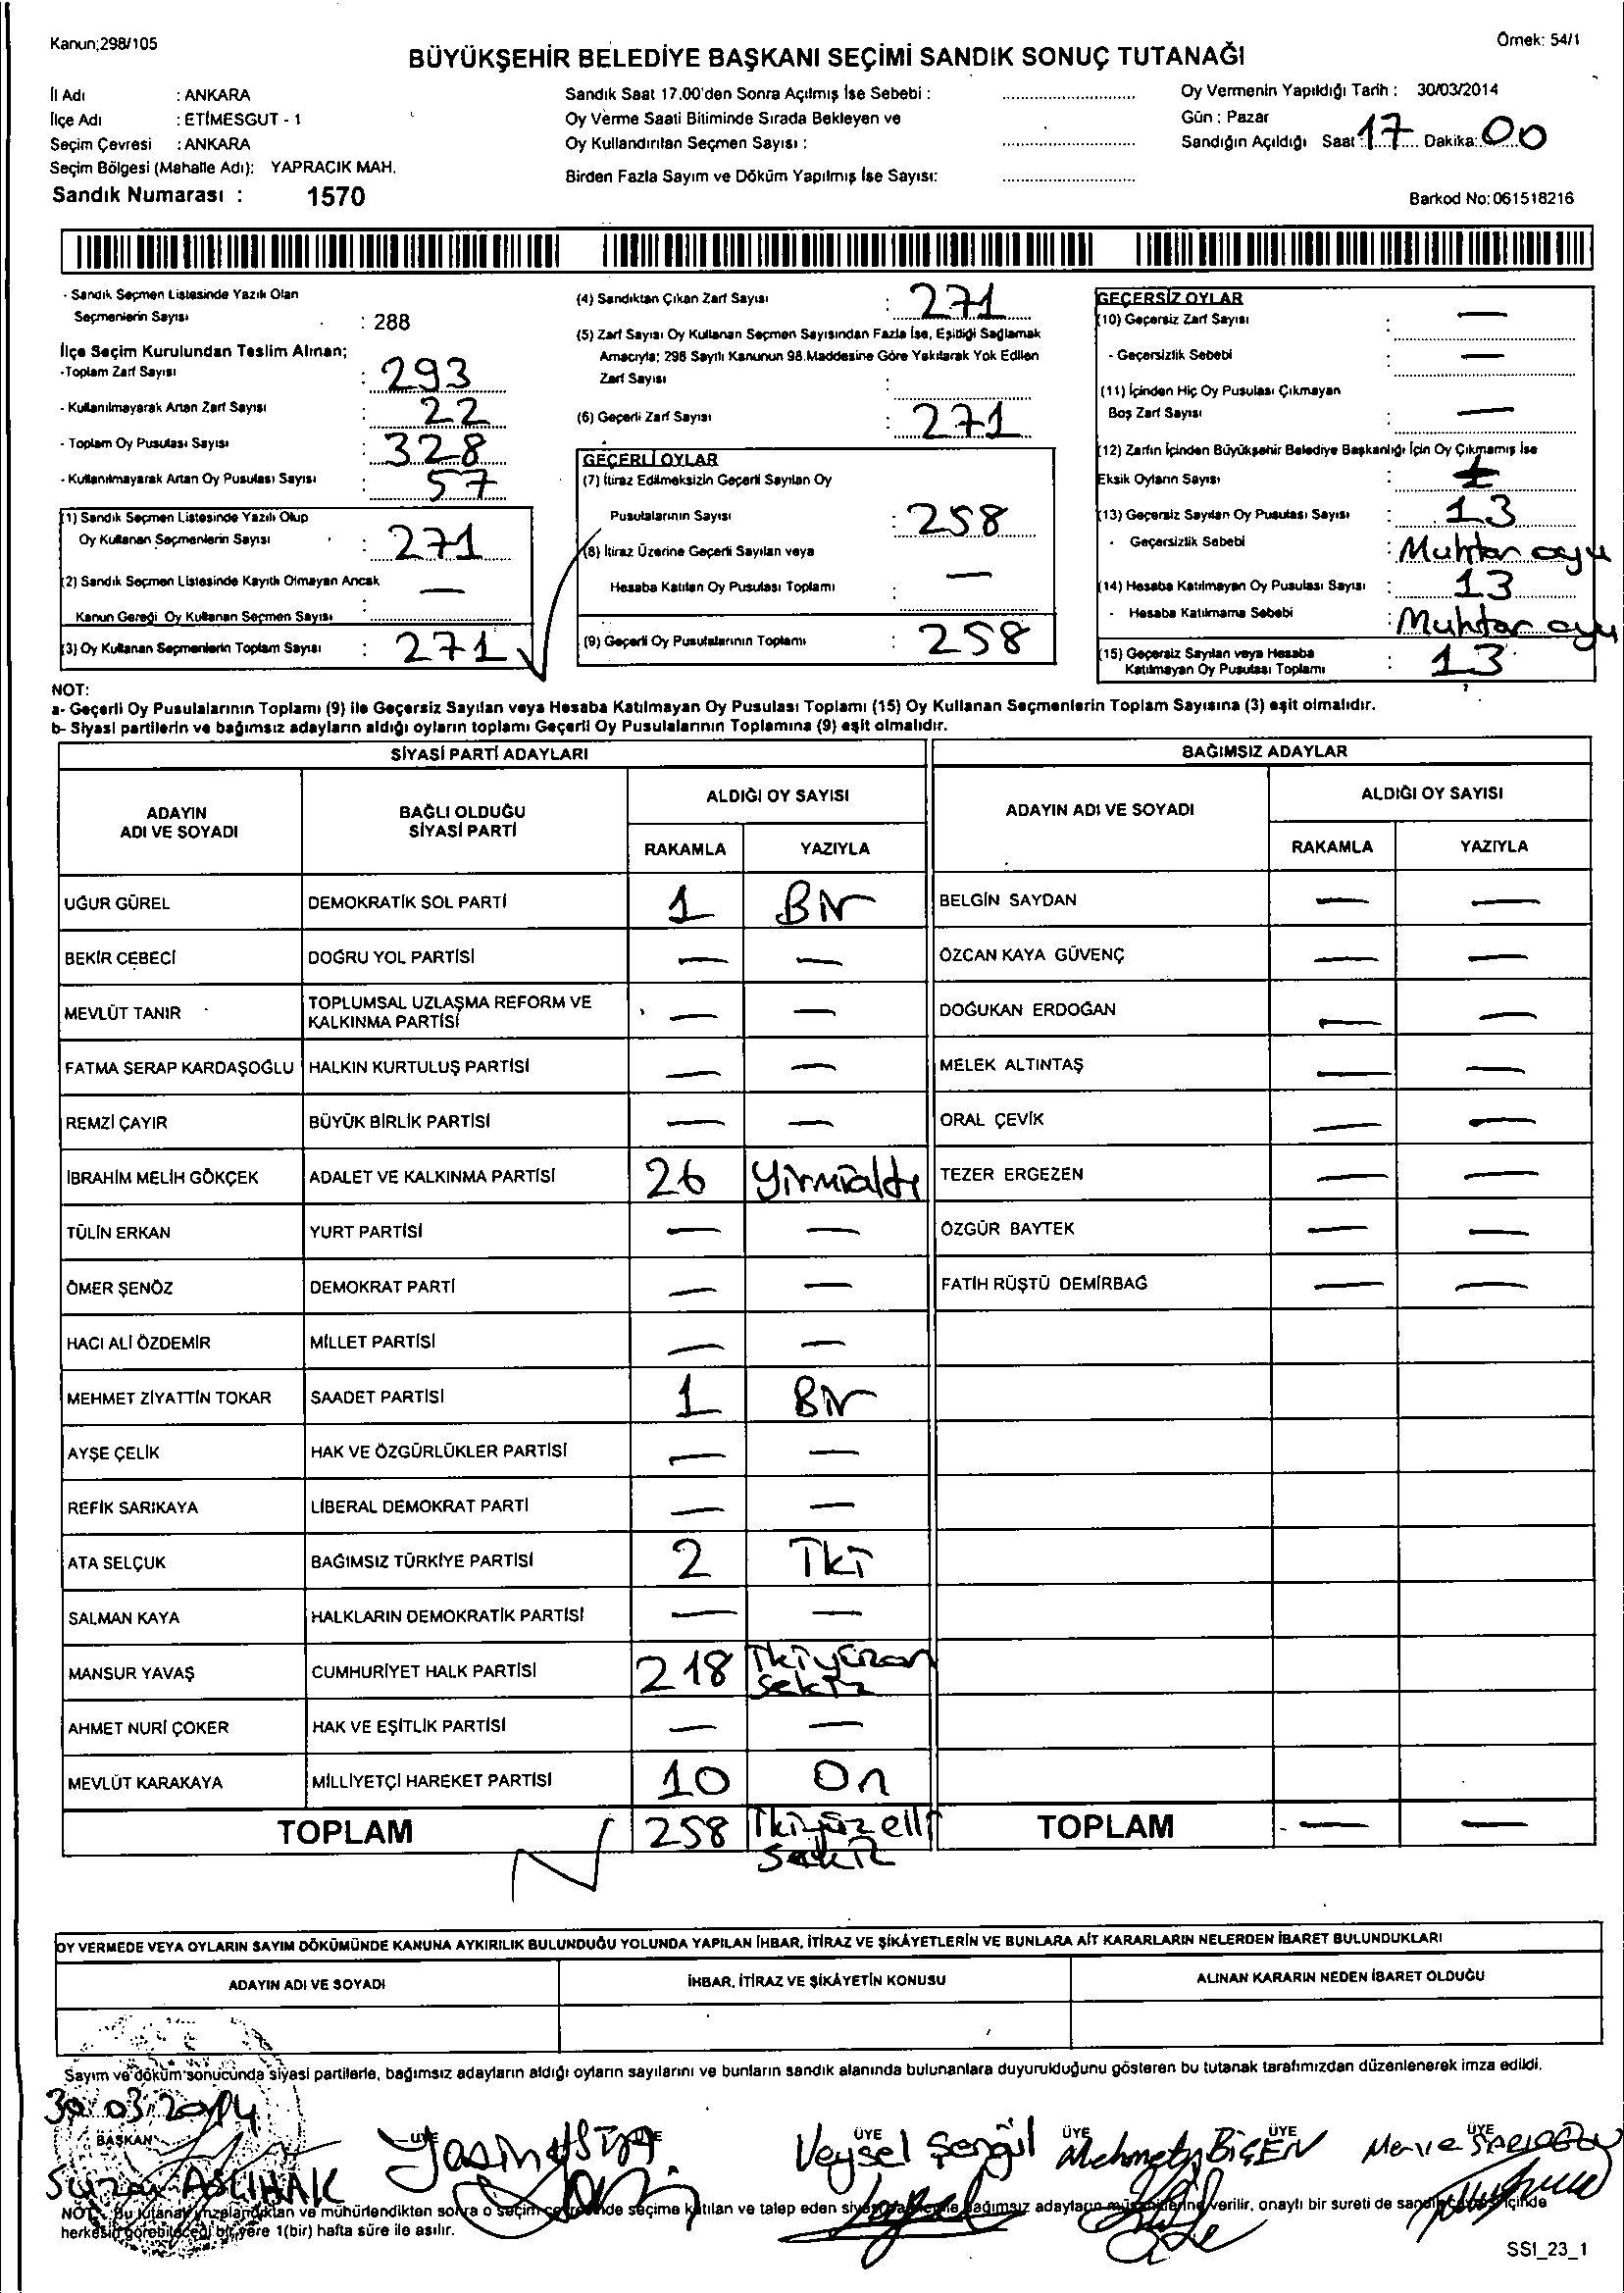 Kanun;298/105
Örnek: 54/1
BÜYÜKŞEHİR BELEDİYE BAŞKANI SEÇİMİ SANDIK SONUÇ TUTANAĞI
İl Adı : ANKARA
İlçe Adı : ETİMESGUT - 1
Seçim Çevresi : ANKARA
Seçim Bölgesi (Mahalle Adı); YAPRACIK MAH.
Sandık Numarası : 1570
Sandık Saat 17.00'den Sonra Açılmış İse Sebebi :
Oy Verme Saati Bitiminde Sırada Bekleyen ve
Oy Kullandırılan Seçmen Sayısı :
Birden Fazla Sayım ve Döküm Yapılmış İse Sayısı:
Oy Vermenin Yapıldığı Tarih : 30/03/2014
Gün : Pazar
Sandığın Açıldığı Saat : 17 Dakika: 00
Barkod No: 061518216
- Sandık Seçmen Listesinde Yazılı Olan
Seçmenlerin Sayısı : 288
İlçe Seçim Kurulundan Teslim Alınan;
-Toplam Zarf Sayısı : 293
- Kullanılmayarak Artan Zarf Sayısı : 22
- Toplam Oy Pusulası Sayısı : 328
- Kullanılmayarak Artan Oy Pusulası Sayısı : 57
(1) Sandık Seçmen Listesinde Yazılı Olup
Oy Kullanan Seçmenlerin Sayısı : 271
(2) Sandık Seçmen Listesinde Kayıtlı Olmayan Ancak
Kanun Gereği Oy Kullanan Seçmen Sayısı : —
(3) Oy Kullanan Seçmenlerin Toplam Sayısı : 271
(4) Sandıktan Çıkan Zarf Sayısı : 271
(5) Zarf Sayısı Oy Kullanan Seçmen Sayısından Fazla İse, Eşitliği Sağlamak
Amacıyla; 298 Sayılı Kanunun 98.Maddesine Göre Yakılarak Yok Edilen
Zarf Sayısı :
(6) Geçerli Zarf Sayısı : 271
GEÇERLİ OYLAR
(7) İtiraz Edilmeksizin Geçerli Sayılan Oy
Pusulalarının Sayısı : 258
(8) İtiraz Üzerine Geçerli Sayılan veya
Hesaba Katılan Oy Pusulası Toplamı : —
(9) Geçerli Oy Pusulalarının Toplamı : 258
GEÇERSİZ OYLAR
(10) Geçersiz Zarf Sayısı : —
- Geçersizlik Sebebi : —
(11) İçinden Hiç Oy Pusulası Çıkmayan
Boş Zarf Sayısı : —
(12) Zarfın İçinden Büyükşehir Belediye Başkanlığı İçin Oy Çıkmamış İse
Eksik Oyların Sayısı :
(13) Geçersiz Sayılan Oy Pusulası Sayısı : 13
- Geçersizlik Sebebi : Muhtar oyu
(14) Hesaba Katılmayan Oy Pusulası Sayısı : 13
- Hesaba Katılmama Sebebi : Muhtar oyu
(15) Geçersiz Sayılan veya Hesaba
Katılmayan Oy Pusulası Toplamı : 13
NOT:
a- Geçerli Oy Pusulalarının Toplamı (9) ile Geçersiz Sayılan veya Hesaba Katılmayan Oy Pusulası Toplamı (15) Oy Kullanan Seçmenlerin Toplam Sayısına (3) eşit olmalıdır.
b- Siyasi partilerin ve bağımsız adayların aldığı oyların toplamı Geçerli Oy Pusulalarının Toplamına (9) eşit olmalıdır.
SİYASİ PARTİ ADAYLARI
BAĞIMSIZ ADAYLAR
ADAYIN ADI VE SOYADI
BAĞLI OLDUĞU SİYASİ PARTİ
ALDIĞI OY SAYISI
RAKAMLA YAZIYLA
ADAYIN ADI VE SOYADI
ALDIĞI OY SAYISI
RAKAMLA YAZIYLA
UĞUR GÜREL DEMOKRATİK SOL PARTİ 1 Bir BELGİN SAYDAN — —
BEKİR CEBECİ DOĞRU YOL PARTİSİ — — ÖZCAN KAYA GÜVENÇ — —
MEVLÜT TANIR TOPLUMSAL UZLAŞMA REFORM VE KALKINMA PARTİSİ — — DOĞUKAN ERDOĞAN — —
FATMA SERAP KARDAŞOĞLU HALKIN KURTULUŞ PARTİSİ — — MELEK ALTINTAŞ — —
REMZİ ÇAYIR BÜYÜK BİRLİK PARTİSİ — — ORAL ÇEVİK — —
İBRAHİM MELİH GÖKÇEK ADALET VE KALKINMA PARTİSİ 26 Yirmialtı TEZER ERGEZEN — —
TÜLİN ERKAN YURT PARTİSİ — — ÖZGÜR BAYTEK — —
ÖMER ŞENÖZ DEMOKRAT PARTİ — — FATİH RÜŞTÜ DEMİRBAĞ — —
HACI ALİ ÖZDEMİR MİLLET PARTİSİ — —
MEHMET ZİYATTİN TOKAR SAADET PARTİSİ 1 Bir
AYŞE ÇELİK HAK VE ÖZGÜRLÜKLER PARTİSİ — —
REFİK SARIKAYA LİBERAL DEMOKRAT PARTİ — —
ATA SELÇUK BAĞIMSIZ TÜRKİYE PARTİSİ 2 İki
SALMAN KAYA HALKLARIN DEMOKRATİK PARTİSİ — —
MANSUR YAVAŞ CUMHURİYET HALK PARTİSİ 218 İkiyüzon sekiz
AHMET NURİ ÇOKER HAK VE EŞİTLİK PARTİSİ — —
MEVLÜT KARAKAYA MİLLİYETÇİ HAREKET PARTİSİ 10 On
TOPLAM 258 İkiyüzelli sekiz TOPLAM — —
OY VERMEDE VEYA OYLARIN SAYIM DÖKÜMÜNDE KANUNA AYKIRILIK BULUNDUĞU YOLUNDA YAPILAN İHBAR, İTİRAZ VE ŞİKÂYETLERİN VE BUNLARA AİT KARARLARIN NELERDEN İBARET BULUNDUKLARI
ADAYIN ADI VE SOYADI
İHBAR, İTİRAZ VE ŞİKÂYETİN KONUSU
ALINAN KARARIN NEDEN İBARET OLDUĞU
Sayım ve döküm sonucunda siyasi partilerle, bağımsız adayların aldığı oyların sayılarını ve bunların sandık alanında bulunanlara duyurulduğunu gösteren bu tutanak tarafımızdan düzenlenerek imza edildi.
30.03.2014
BAŞKAN ÜYE ÜYE ÜYE ÜYE ÜYE
Yasin Veysel Şengül Mehmet BİÇEN Merve
NOT: Bu tutanak imzalandıktan ve mühürlendikten sonra o seçim çevresinde seçime katılan ve talep eden siyasi bağımsız adayların müşahitlerine verilir, onaylı bir sureti de sandık içinde
herkesin görebileceği bir yere 1(bir) hafta süre ile asılır.
SSI_23_1